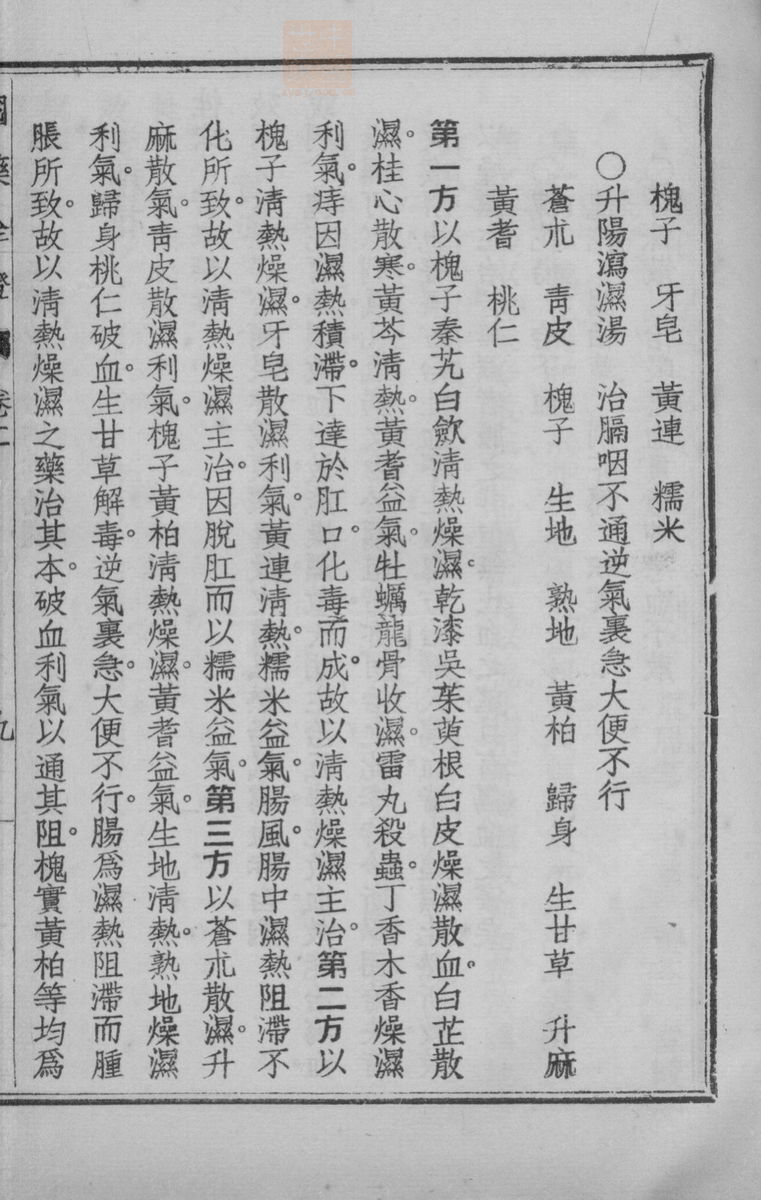 槐子　牙皂　黃連　糯米
〇升陽瀉濕湯　治膈咽不通逆氣裏急大便不行
蒼朮　靑皮　槐子　生地　熟地　黃柏　歸身　生甘草　升麻
黃耆　桃仁
第一方以槐子秦艽白歛淸熱燥濕。乾漆吳茱萸根白皮燥濕散血。白芷散
濕。桂心散寒。黃芩淸熱。黃耆益氣。牡蠣龍骨收濕。雷丸殺蟲。丁香木香燥濕
利氣。痔因濕熱積滯。下達於肛口。化毒而成。故以淸熱燥濕主治。第二方以
槐子淸熱燥濕。牙皂散濕利氣。黃連淸熱。糯米益氣。腸風。腸中濕熱阻滯不
化所致。故以淸熱燥濕主治。因脫肛而以糯米益氣。第三方以蒼朮散濕。升
麻散氣。靑皮散濕利氣。槐子黃柏淸熱燥濕。黃耆益氣。生地淸熱。熟地燥濕
利氣。歸身桃仁破血。生甘草解毒。逆氣裏急。大便不行。腸爲濕熱阻滯而腫
脹所致。故以淸熱燥濕之藥治其本。破血利氣以通其阻。槐實黃柏等均爲
國藥詮證　卷二　九